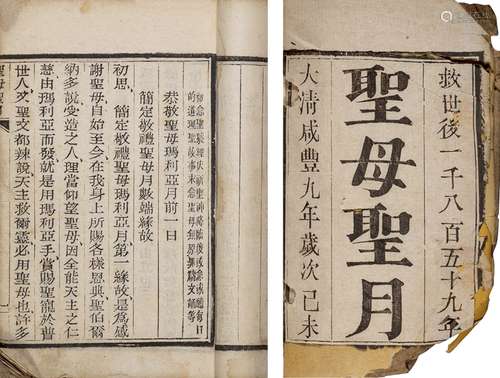 救世後一千八百五十九年
聖母聖月
大清咸豐九年歲次己未
恭敬聖母瑪利亞月前一日
簡定敬禮聖母月數端緣故
初思 簡定敬禮聖母瑪利亞月第一緣故是為感
謝聖母自始至今在我身上所賜各樣恩典聖伯爾
納多說受造之人理當仰望聖母因全能天主之仁
慈由瑪利亞而發就是用瑪利亞手賞賜聖寵於普
世人又聖文都辣說天主救爾靈必用聖母也許多